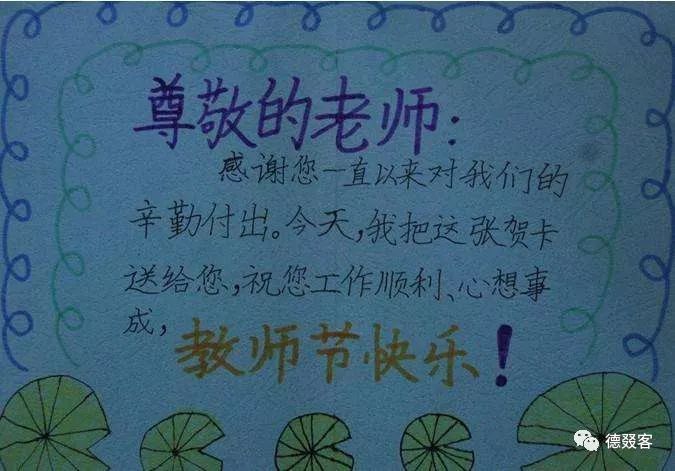 尊敬的老师:
感谢您一直以来对我们的
辛勤付出。今天,我把这张贺卡
送给您,祝您工作顺利、心想事
成,
教师节快乐!
德叕客